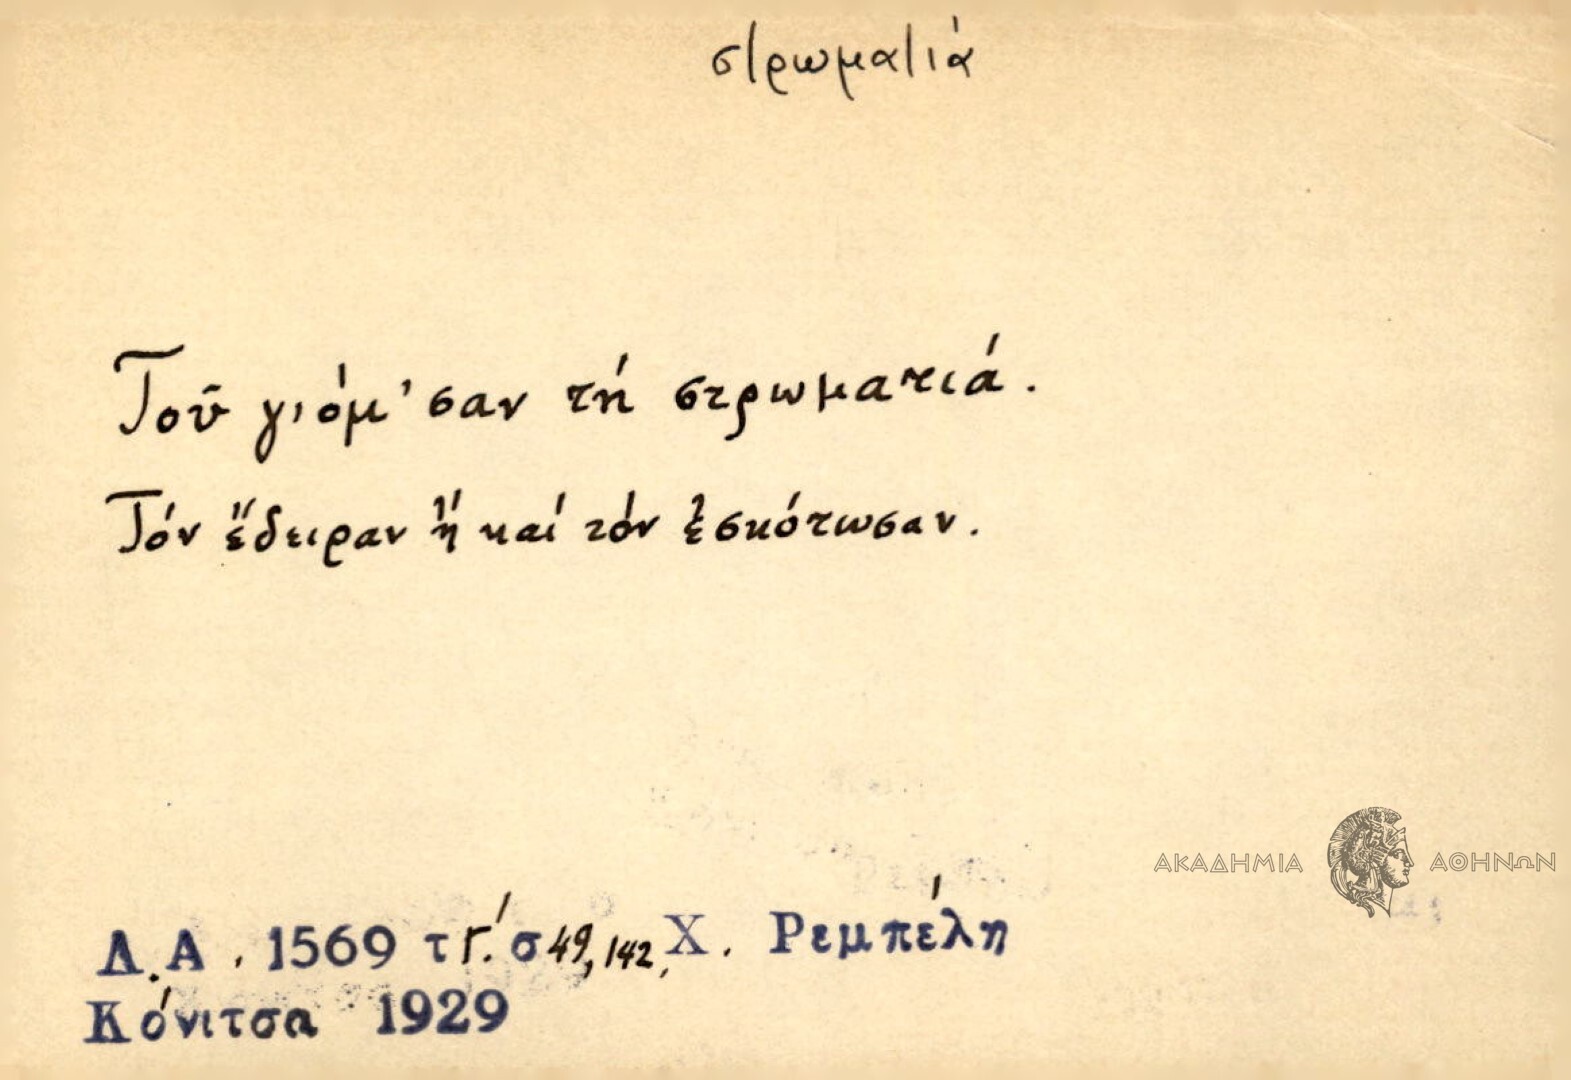 στρωματιά
Τοῦ γιόμ'σαν τή στρωματιά.
Τόν ἔδειραν ἤ καί τόν ἐσκότωσαν.
ΑΚΑΔΗΜΙΑ ΑΘΗΝΩΝ
Λ.Α. 1569 τ Γ΄. σ 49, 142, Χ. Ρεμπέλη
Κόνιτσα 1929